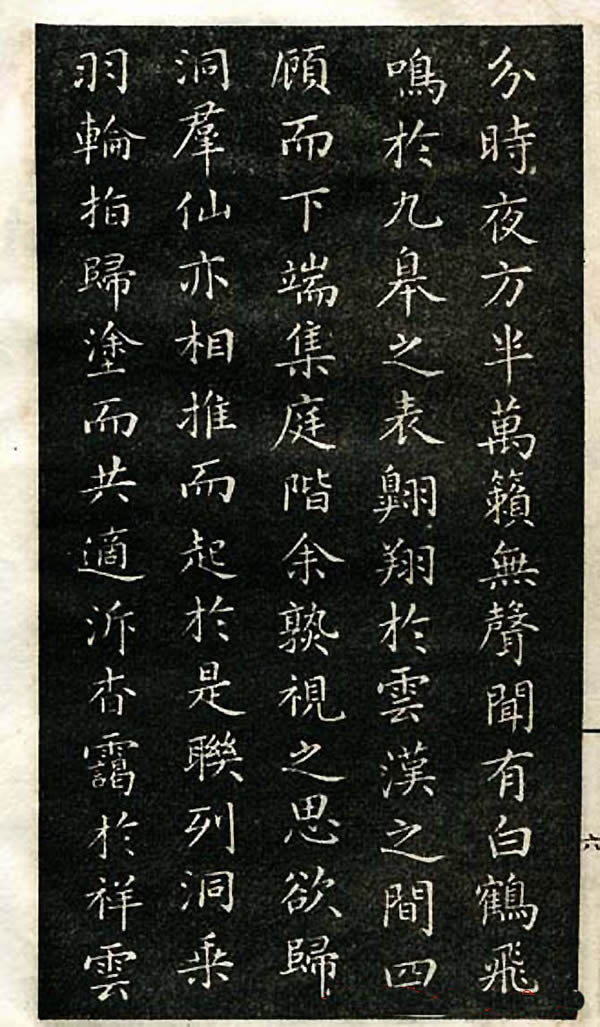 分時夜方半萬籟無聲聞有白鶴飛
鳴於九皋之表翱翔於雲漢之間四
顧而下端集庭階余孰視之思欲歸
洞羣仙亦相推而起於是聯列洞乘
羽輪拍歸塗而共適泝杳靄於祥雲
六